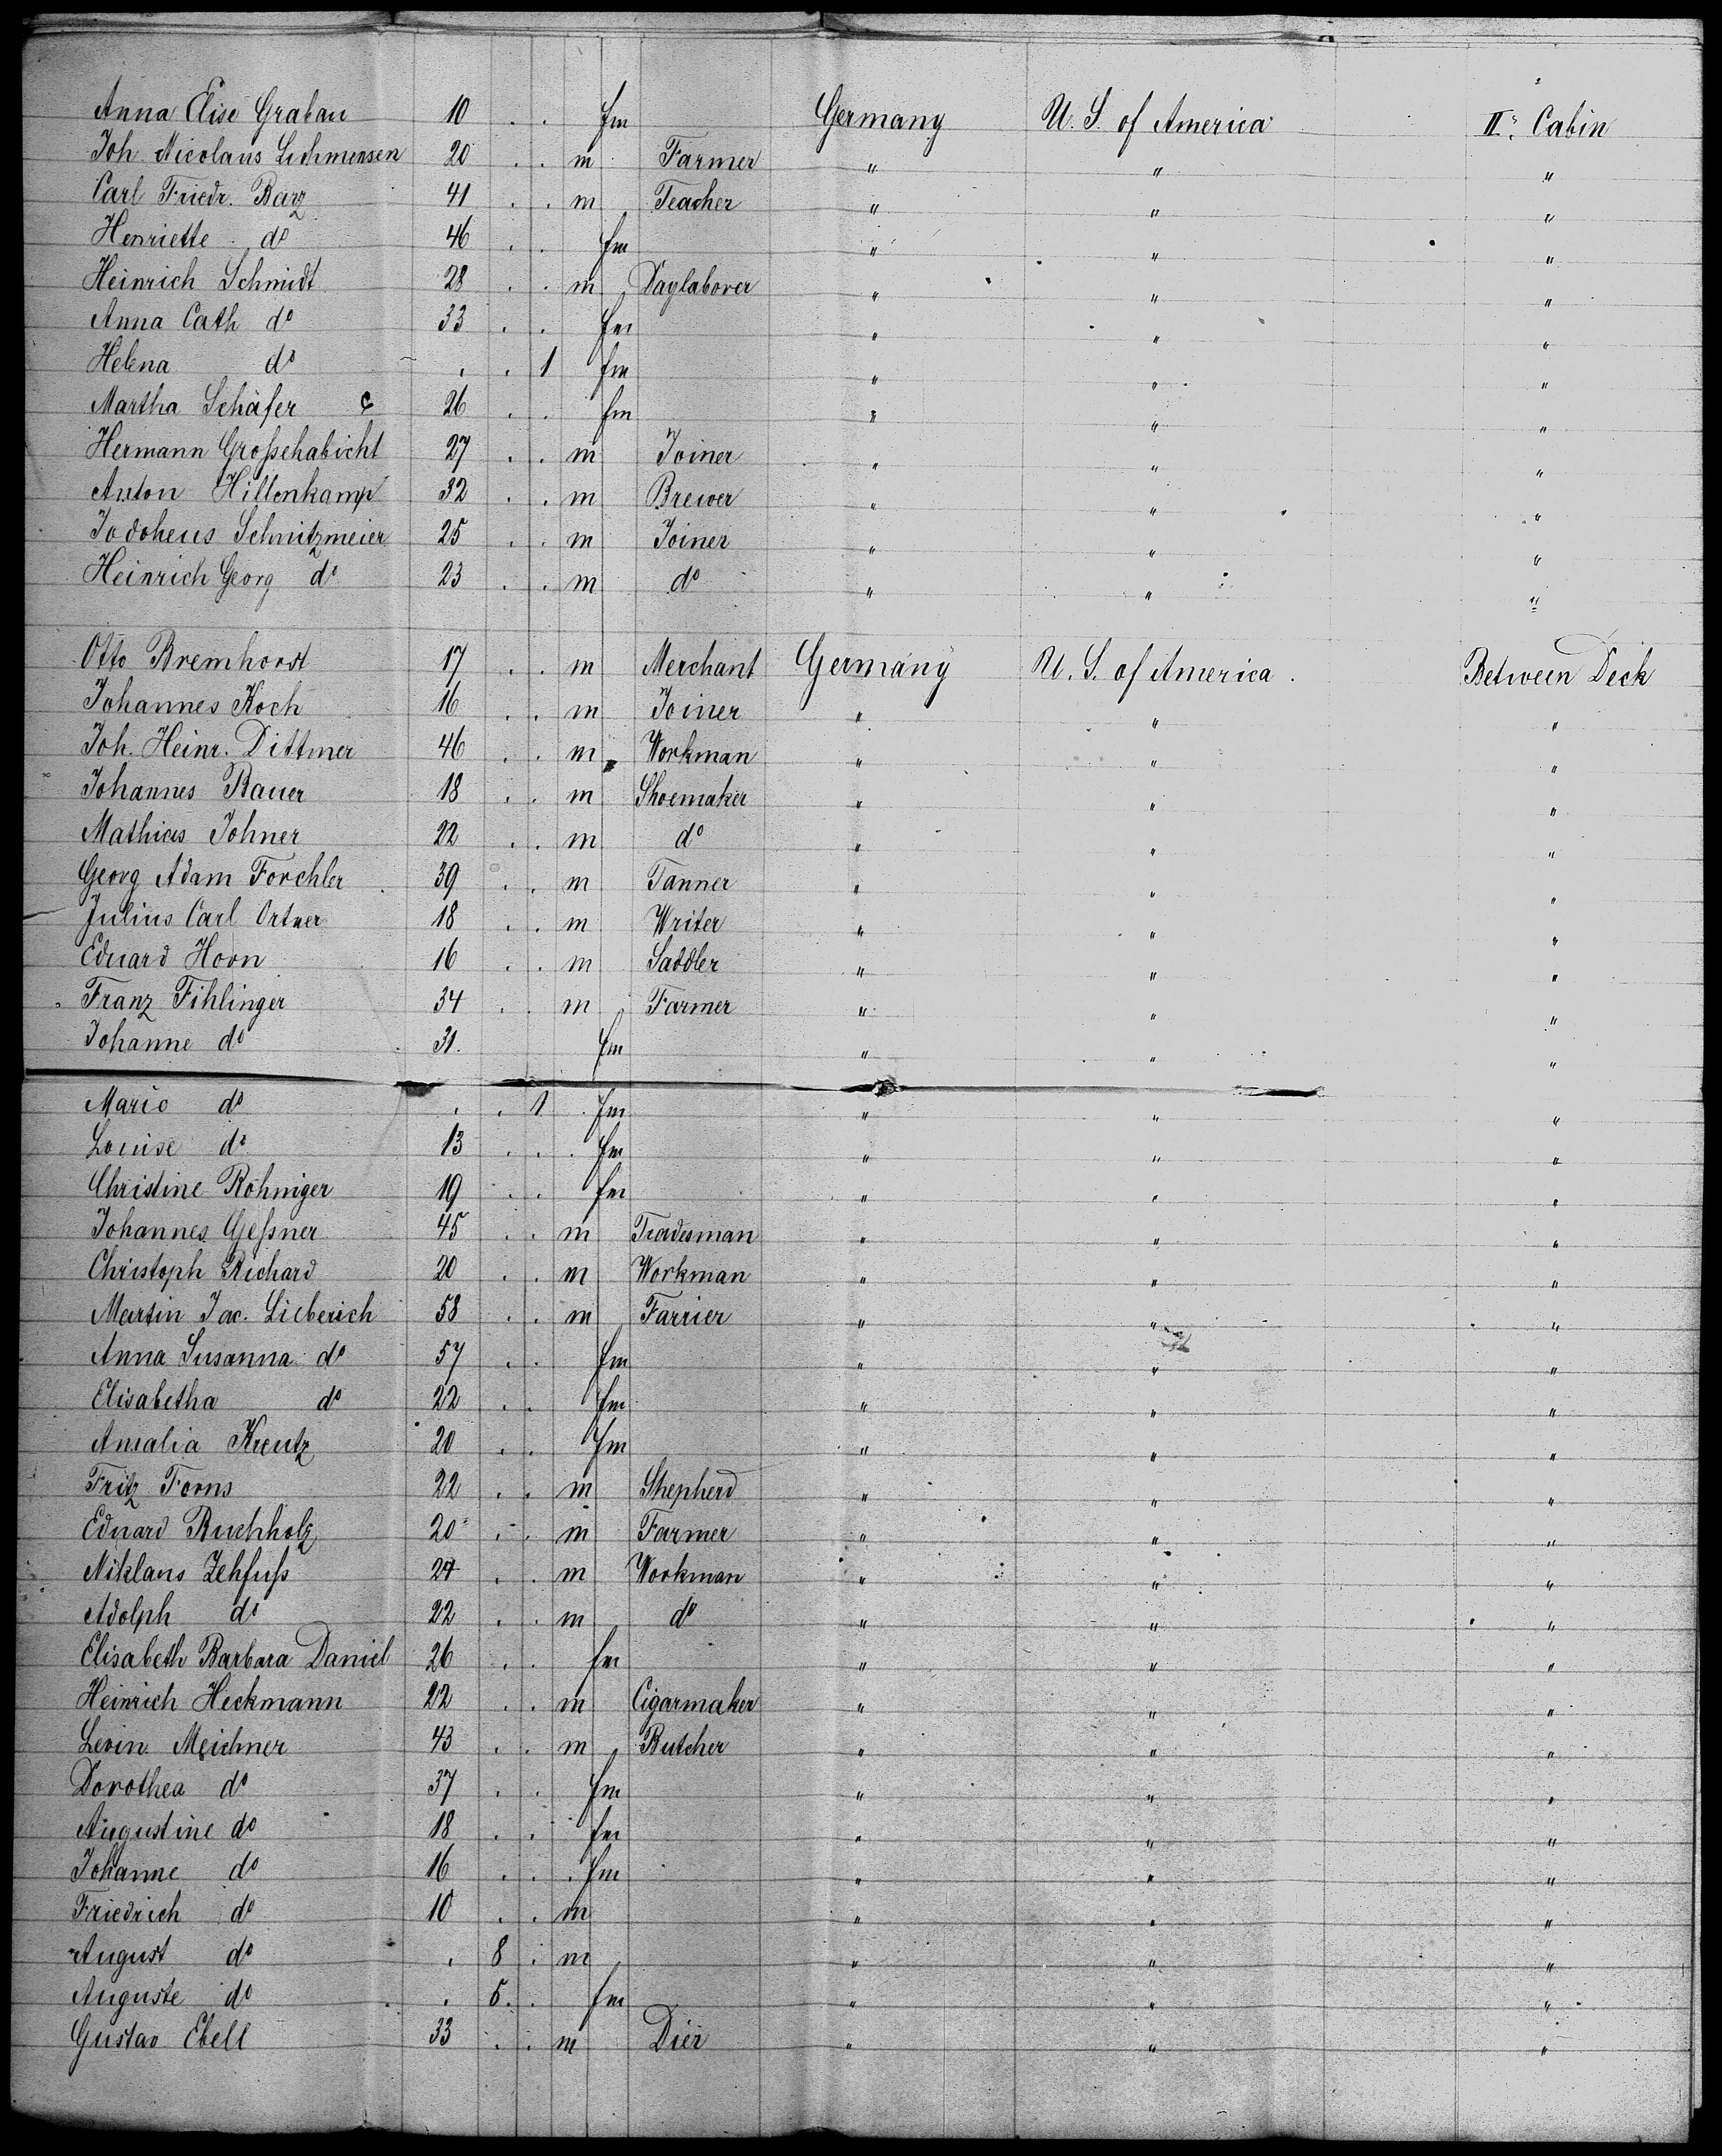 Anna Elise Grabau 10 . . fm Germany U. S. of America II. Cabin
Joh. Nicolaus 20 . . m Farmer " " "
Carl Friedr. Barz 41 . . m Teacher " " "
Henriette do 46 . . fm " " "
Heinrich Schmidt 28 . . m Daylaborer " " "
Anna Cath do 33 . . fm " " "
Helena do . . 1 fm " " "
Martha Schäfer 26 . . fm " " "
Hermann Großehabicht 27 . . m Joiner " " "
Anton Hillenkamp 32 . . m Brewer " " "
Jodoheus Schnitzmeier 25 . . m Joiner " " "
Heinrich Georg do 23 . . m do " " "
Otto Bremhorst 17 . . m Merchant Germany U. S. of America Between Deck
Johannes Koch 16 . . m Joiner " " "
Joh. Heinr. Dittmer 46 . . m Workman " " "
Johannes Bauer 18 . . m Shoemaker " " "
Mathias Johner 22 . . m do " " "
Georg Adam Forchler 39 . . m Tanner " " "
Julius Carl Ortner 18 . . m Writer " " "
Eduard Horn 16 . . m Saddler " " "
Franz Fihlinger 34 . . m Farmer " " "
Johanne do 31 fm " " "
Marie do . . 1 fm " " "
Louise do 13 . . fm " " "
Christine Röhniger 19 . . fm " " "
Johannes Geßner 45 . . m Tradesman " " "
Christoph Richard 20 . . m Workman " " "
Martin Jac. Lieberich 58 . . m Farrier " " "
Anna Susanna do 57 . . fm " " "
Elisabetha do 22 . . fm " " "
Amalia Kreutz 20 . . fm " " "
Fritz Forns 22 . . m Shepherd " " "
Eduard Buchholz 20 . . m Farmer " " "
Niklaus Zehfuß 24 . . m Workman " " "
Adolph do 22 . . m do " " "
Elisabeth Barbara Daniel 26 . . fm " " "
Heinrich Heckmann 22 . . m Cigarmaker " " "
Levin Meichner 43 . . m Butcher " " "
Dorothea do 37 . . fm " " "
Augustine do 18 . . fm " " "
Johanne do 16 . . fm " " "
Friedrich do 10 . . m " " "
August do . 8 . m " " "
Auguste do . 5 . fm " " "
Gustav Ebell 33 . . m Dier " " "